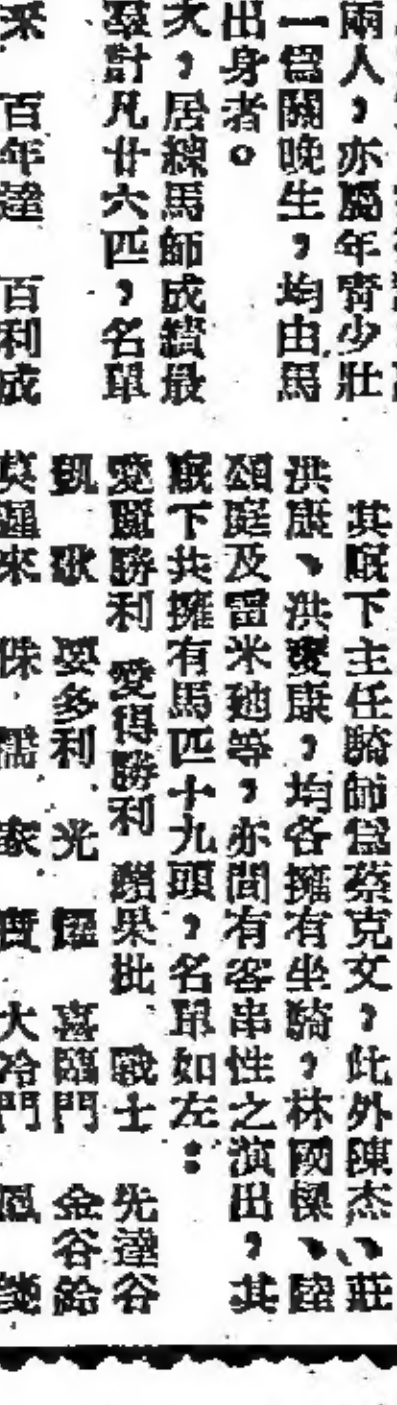 兩人，亦屬年青少壯
一爲關晚生，均由馬
出身者。
次，居練馬師成績最
羣計凡廿六匹，名單
百年達　百利成
其廐下主任騎師爲蔡克文，此外陳杰、莊
洪康、洪變康，均各擁有坐騎，林國樑、陸
頌庭及雷米廸等，亦間有客串性之演出，其
廐下共擁有馬匹十九頭，名單如左：
愛麗勝利　愛得勝利　蘋果批　戰士　先達谷
凱歌　要多利　光耀　喜臨門　金谷鈴
莫遲來　侏儒　家寶　大冷門